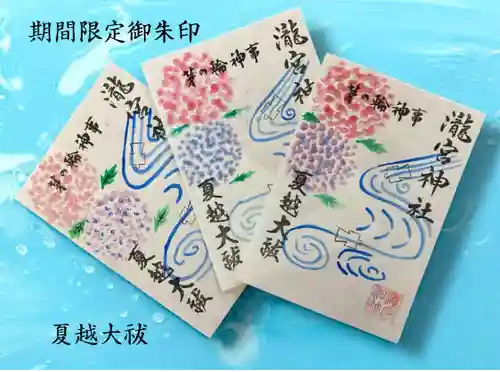 期間限定御朱印
瀧宮神社
茅の輪神事
夏越大祓
瀧宮社
茅の輪神事
夏越大祓
瀧宮神社
茅の輪神事
夏越大祓
夏越大祓